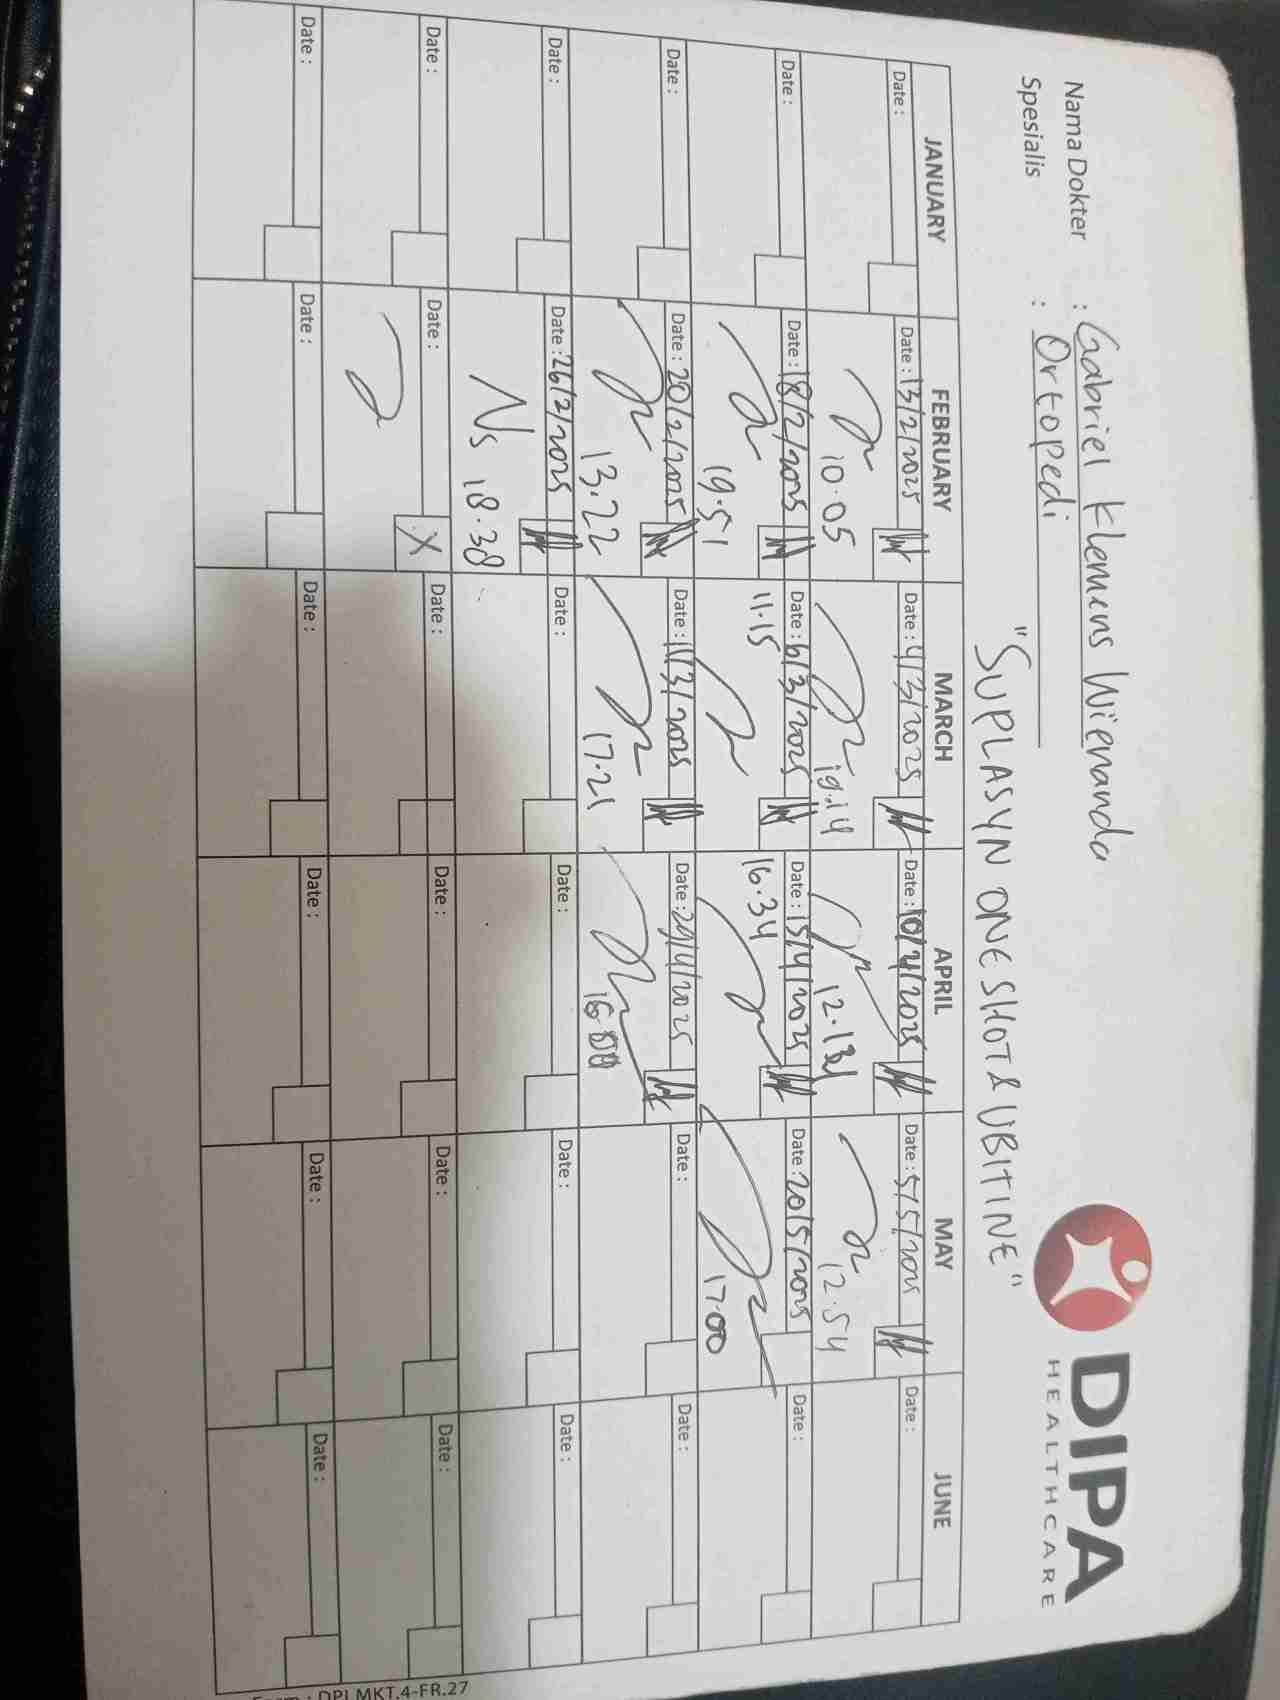 Nama Dokter : Gabriel Klemens Wienanda
Spesialis : Ortopedi
DIPA
HEALTHCARE
"SUPLASYN ONE SHOT & UBITINE"
JANUARY FEBRUARY MARCH APRIL MAY JUNE
Date : Date : 13/2/2025 Date : 4/3/2025 Date : 10/4/2025 Date : 5/5/2025 Date :
10.05 19.14 12.13 12.54
Date : Date : 18/2/2025 Date : 6/3/2025 Date : 15/4/2025 Date : 20/5/2025 Date :
19.51 11.15 16.34 17.00
Date : Date : 20/2/2025 Date : 11/3/2025 Date : 29/4/2025 Date : Date :
13.22 17.21 16.00
Date : Date : 26/2/2025 Date : Date : Date : Date :
Ns 18.38
Date : Date : Date : Date : Date : Date :
X
Date : Date : Date : Date : Date : Date :
Form : DPI.MKT.4-FR.27